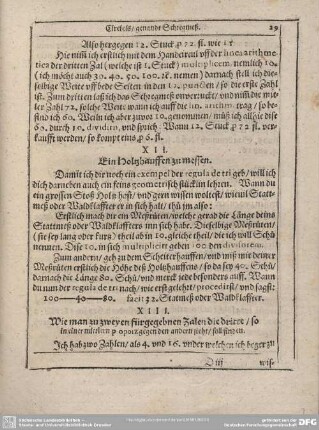 Circkels/ genandt Schregmeß. 29
Also hergegen 12. Stuck p 72. fl. wie 1 ?
Hie nim̃ ich erstlich mit dem Handcircul vff der linea arithme-
tica der dritten Zal (welche ist 1. Stuck) multiplicem, nemlich 10.
(ich möcht auch 30. 40. 50. 100. ꝛc. nemen) darnach stell ich die-
selbige Weite vff bede Seiten in den 12. puncten/ so die erste Zahl
ist. Zum dritten laß ich das Schregmeß onverruckt/ vnd nim̃ die mit-
ler Zahl 72. solche Weite wann ich auff die lin. arithm. trag/ so be-
find ich 60. Weiln ich aber zuvor 10. genommen/ muß ich allhie dise
60. durch 10. dividirn, vnd sprich: Wann 12. Stuck p 72 fl. ver-
kaufft werden/ so kompt eins p 6. fl.
XII.
Ein Holzhauffen zu messen.
Damit ich dir noch ein exempel der regula de tri geb/ will ich
dich darneben auch ein feines geometrisch stücklin lehren. Wann du
ein grossen Stoß Holz hast/ vnd gern wissen woltest/ wieviel Statt-
meß oder Waldklaffter er in sich halt/ thu jm also:
Erstlich mach dir ein Meßruten/ welche gerad die Länge deins
Stattmeß oder Waldklaffters inn sich habe. Dieselbige Meßruten/
(sie sey lang oder kurz) theil ab in 10. gleiche theil/ die ich will Schů
nennen. Dise 10. in sich multiplicirt geben 100 den divisorem.
Zum andern/ geh zu dem Scheitterhauffen/ vnd miß mit deiner
Meßruten erstlich die Höhe deß Holzhauffens/ so da sey 40. Schů/
darnach die Länge 80. Schů/ vnd merck jede besonders auff. Wann
du nun der regula de tri nach/ wie erst gelehrt/ procedirst/ vnd sagst:
100——40——80. facit: 32. Stattmeß oder Waldklaffter.
XIII.
Wie man zu zweyen fürgegebnen Zalen die dritte/ so
in einer gleichen proport gegen den andern steht/ soll finden.
Ich hab zwo Zahlen/ als 4. vnd 16. vnder welchen ich beger zu
D iij wis-